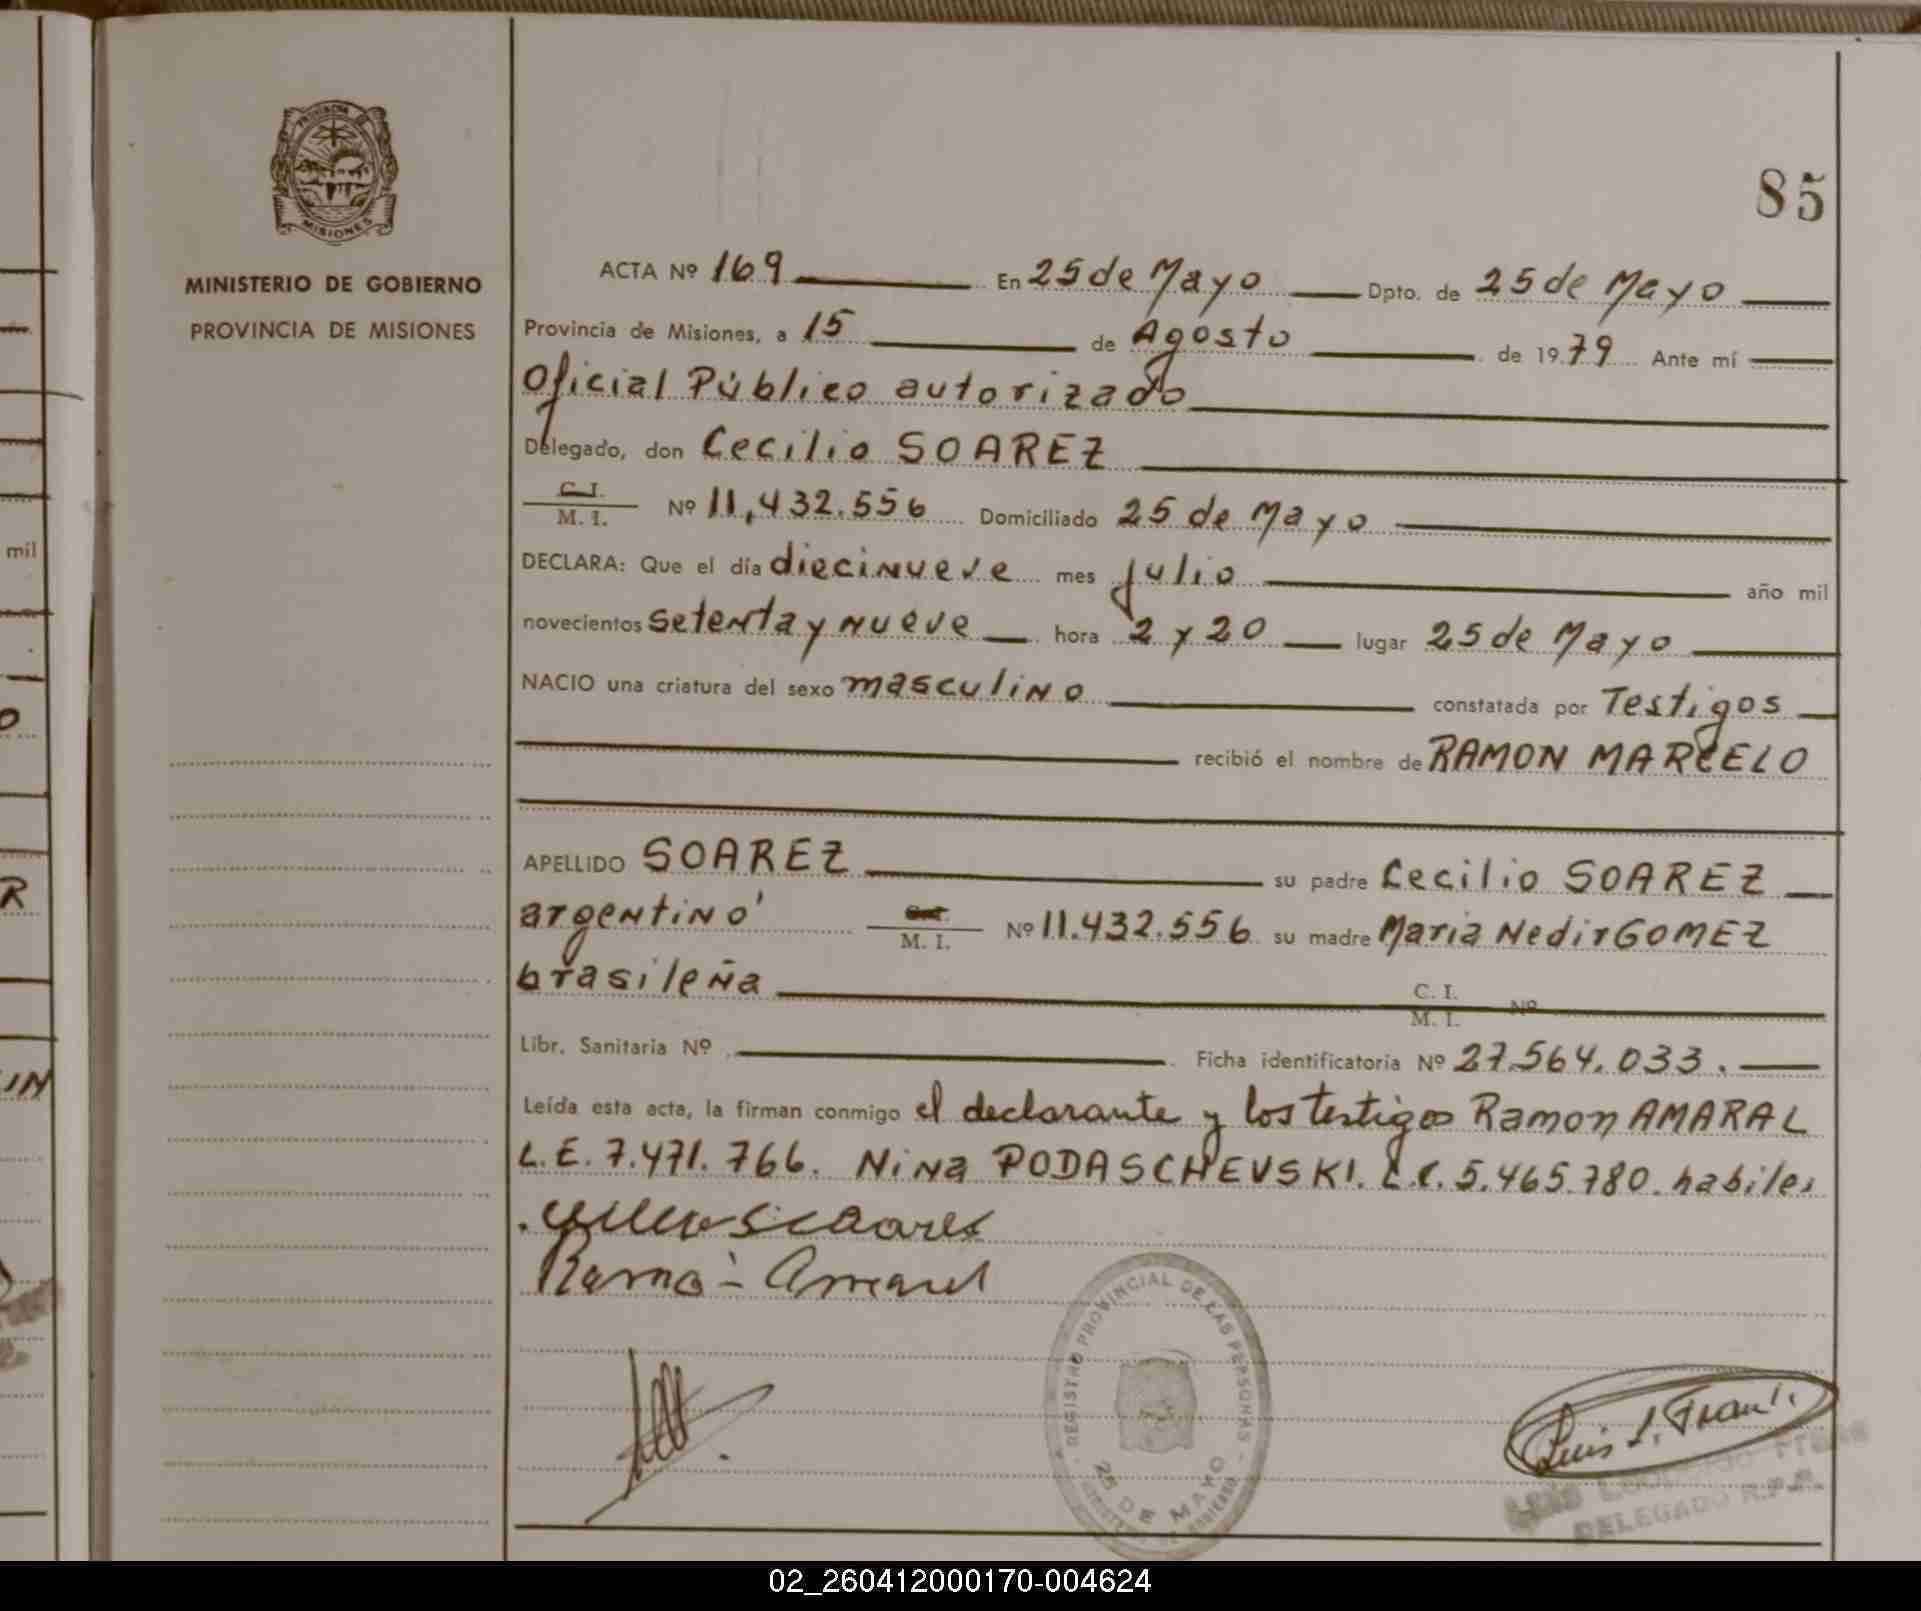 85
PROVINCIA DE
MISIONES
MINISTERIO DE GOBIERNO
PROVINCIA DE MISIONES
ACTA Nº 169 En 25 de Mayo Dpto. de 25 de Mayo
Provincia de Misiones, a 15 de Agosto de 1979 Ante mí
Oficial Público autorizado
Delegado, don Cecilio SOAREZ
C. I.
M. I. Nº 11,432.556 Domiciliado 25 de Mayo
DECLARA: Que el día diecinueve mes julio año mil
novecientos setenta y nueve hora 2 y 20 lugar 25 de Mayo
NACIO una criatura del sexo masculino constatada por Testigos
recibió el nombre de RAMON MARCELO
APELLIDO SOAREZ su padre Cecilio SOAREZ
argentino M. I. Nº 11.432.556 su madre Maria Nedir GOMEZ
brasileña C. I.
M. I. Nº
Libr. Sanitaria Nº Ficha identificatoria Nº 27.564.033.
Leída esta acta, la firman conmigo el declarante y los testigos Ramon AMARAL
L.E. 7.471.766. Nina PODASCHEVSKI. L.C. 5.465.780. habiles
REGISTRO PROVINCIAL DE LAS PERSONAS
25 DE MAYO
Luis L.
DELEGADO R.P.P.
mil
O
R
IN
02_260412000170-004624